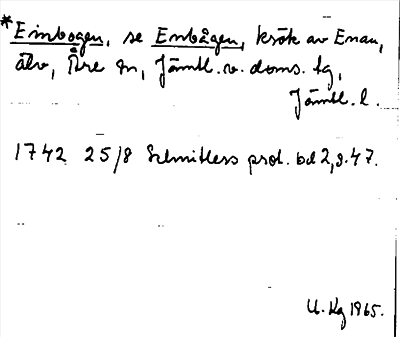 *Einbogen, se Enbågen, krök av Enan,
älv, Åre sn, Jämtl. v. doms. tg,
Jämtl. l.
1742 25/8 Schnitlers prot. bd 2, s. 47.
U. Kg 1965.